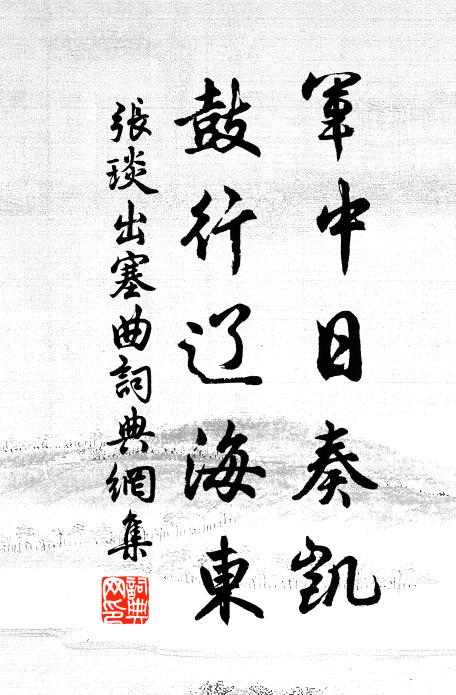 軍中日奏凱
鼓行辽海東
張琰出塞曲詞典網集
詞典网印